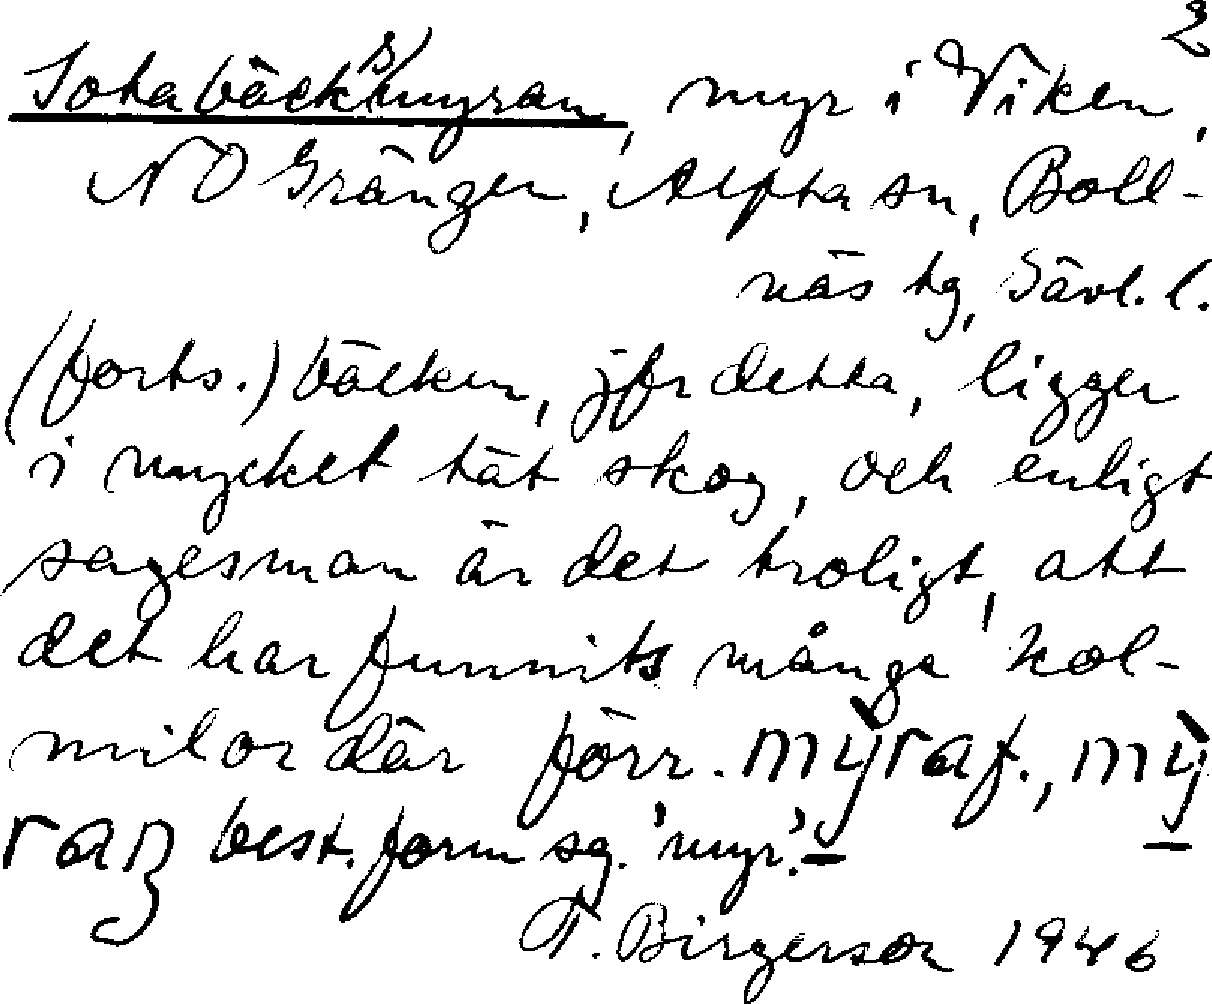 2
Sotabäck(s)myran, myr i Viken,
NO Grängen, Alfta sn, Boll-
näs tg, Gävl. l.
(forts.) bäcken, jfr detta, ligger
i mycket tät skog, och enligt
sagesman är det troligt, att
det har funnits många kol-
milor där förr. mỳra f., mỳ
raṇ best. form sg. 'myr'. –
T. Birgerson 1946